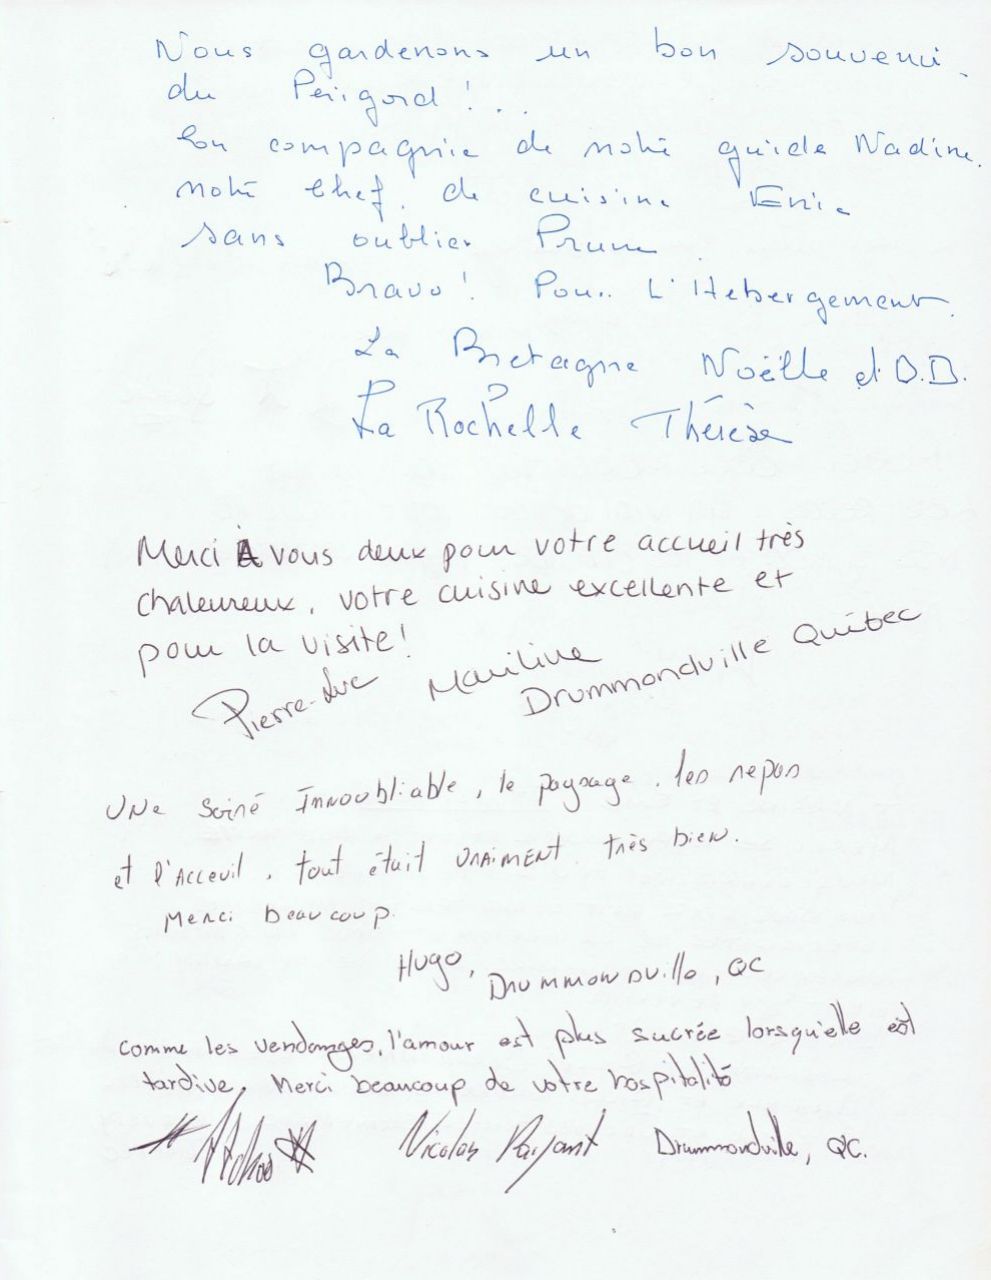 Nous garderons un bon souvenir
du Périgord !...
En compagnie de notre guide Nadine.
notre chef. de cuisine Eric
sans oublier Prune
Bravo ! Pour L'Hebergement.
La Bretagne Noëlle et D.D.
La Rochelle Thérèse
Merci À vous deux pour votre accueil très
chaleureux, votre cuisine excellente et
pour la visite !
Pierre-Luc Mariline Drummondville Québec
UNe soiré INNoubliable, le paysage, les repas
et l'Acceuil, tout était vraiment très bien.
Merci beaucoup.
Hugo, Drummondville, QC
comme les vendanges, l'amour est plus sucrée lorsqu'elle est
tardive, Merci beaucoup de votre hospitalité
Nicolas Paryant Drummondville, QC.